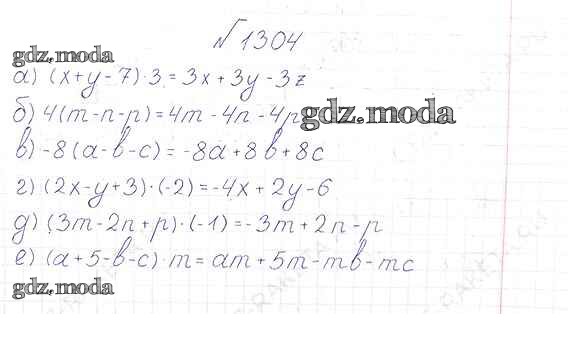 №1304
gdz.moda
а) (x+y-7)·3=3x+3y-3z
б) 4(m-n-p)=4m-4n-4p
gdz.moda
в) -8(a-b-c)=-8a+8b+8c
г) (2x-y+3)·(-2)=-4x+2y-6
д) (3m-2n+p)·(-1)=-3m+2n-p
е) (a+5-b-c)·m=am+5m-mb-mc
gdz.moda